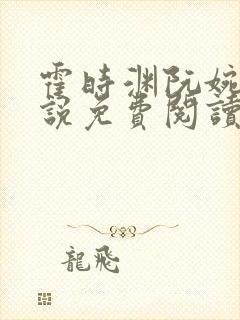 霍時渊阮婉
說免費閱讀
龍飛